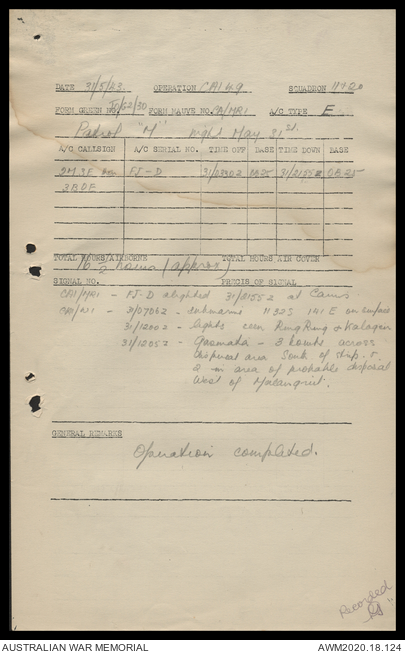 DATE 31/5/43 OPERATION CAI 49 SQUADRON 11 & 20
FORM GREEN NO. FORM MAUVE NO. A/C TYPE E
Patrol "M" night May 31st.
A/C CALLSIGN A/C SERIAL NO. TIME OFF BASE TIME DOWN BASE
FJ-D
TOTAL HOURS AIRBORNE TOTAL HOURS AIR COVER
16 ½ hours (approx)
SIGNAL NO. PRECIS OF SIGNAL
CAI/MRI - FJ-D alighted 31/2155Z at Cairns
31/0706Z - submarine 1132S 141 E on surface
31/1200Z - lights seen Ring Ring & Kalagen
31/1205Z - Gasmata - 3 bombs across
dispersal area South of strip &
2 in area of probable dispersal
West of
GENERAL REMARKS
Operation completed.
Recorded
AUSTRALIAN WAR MEMORIAL AWM2020.18.124